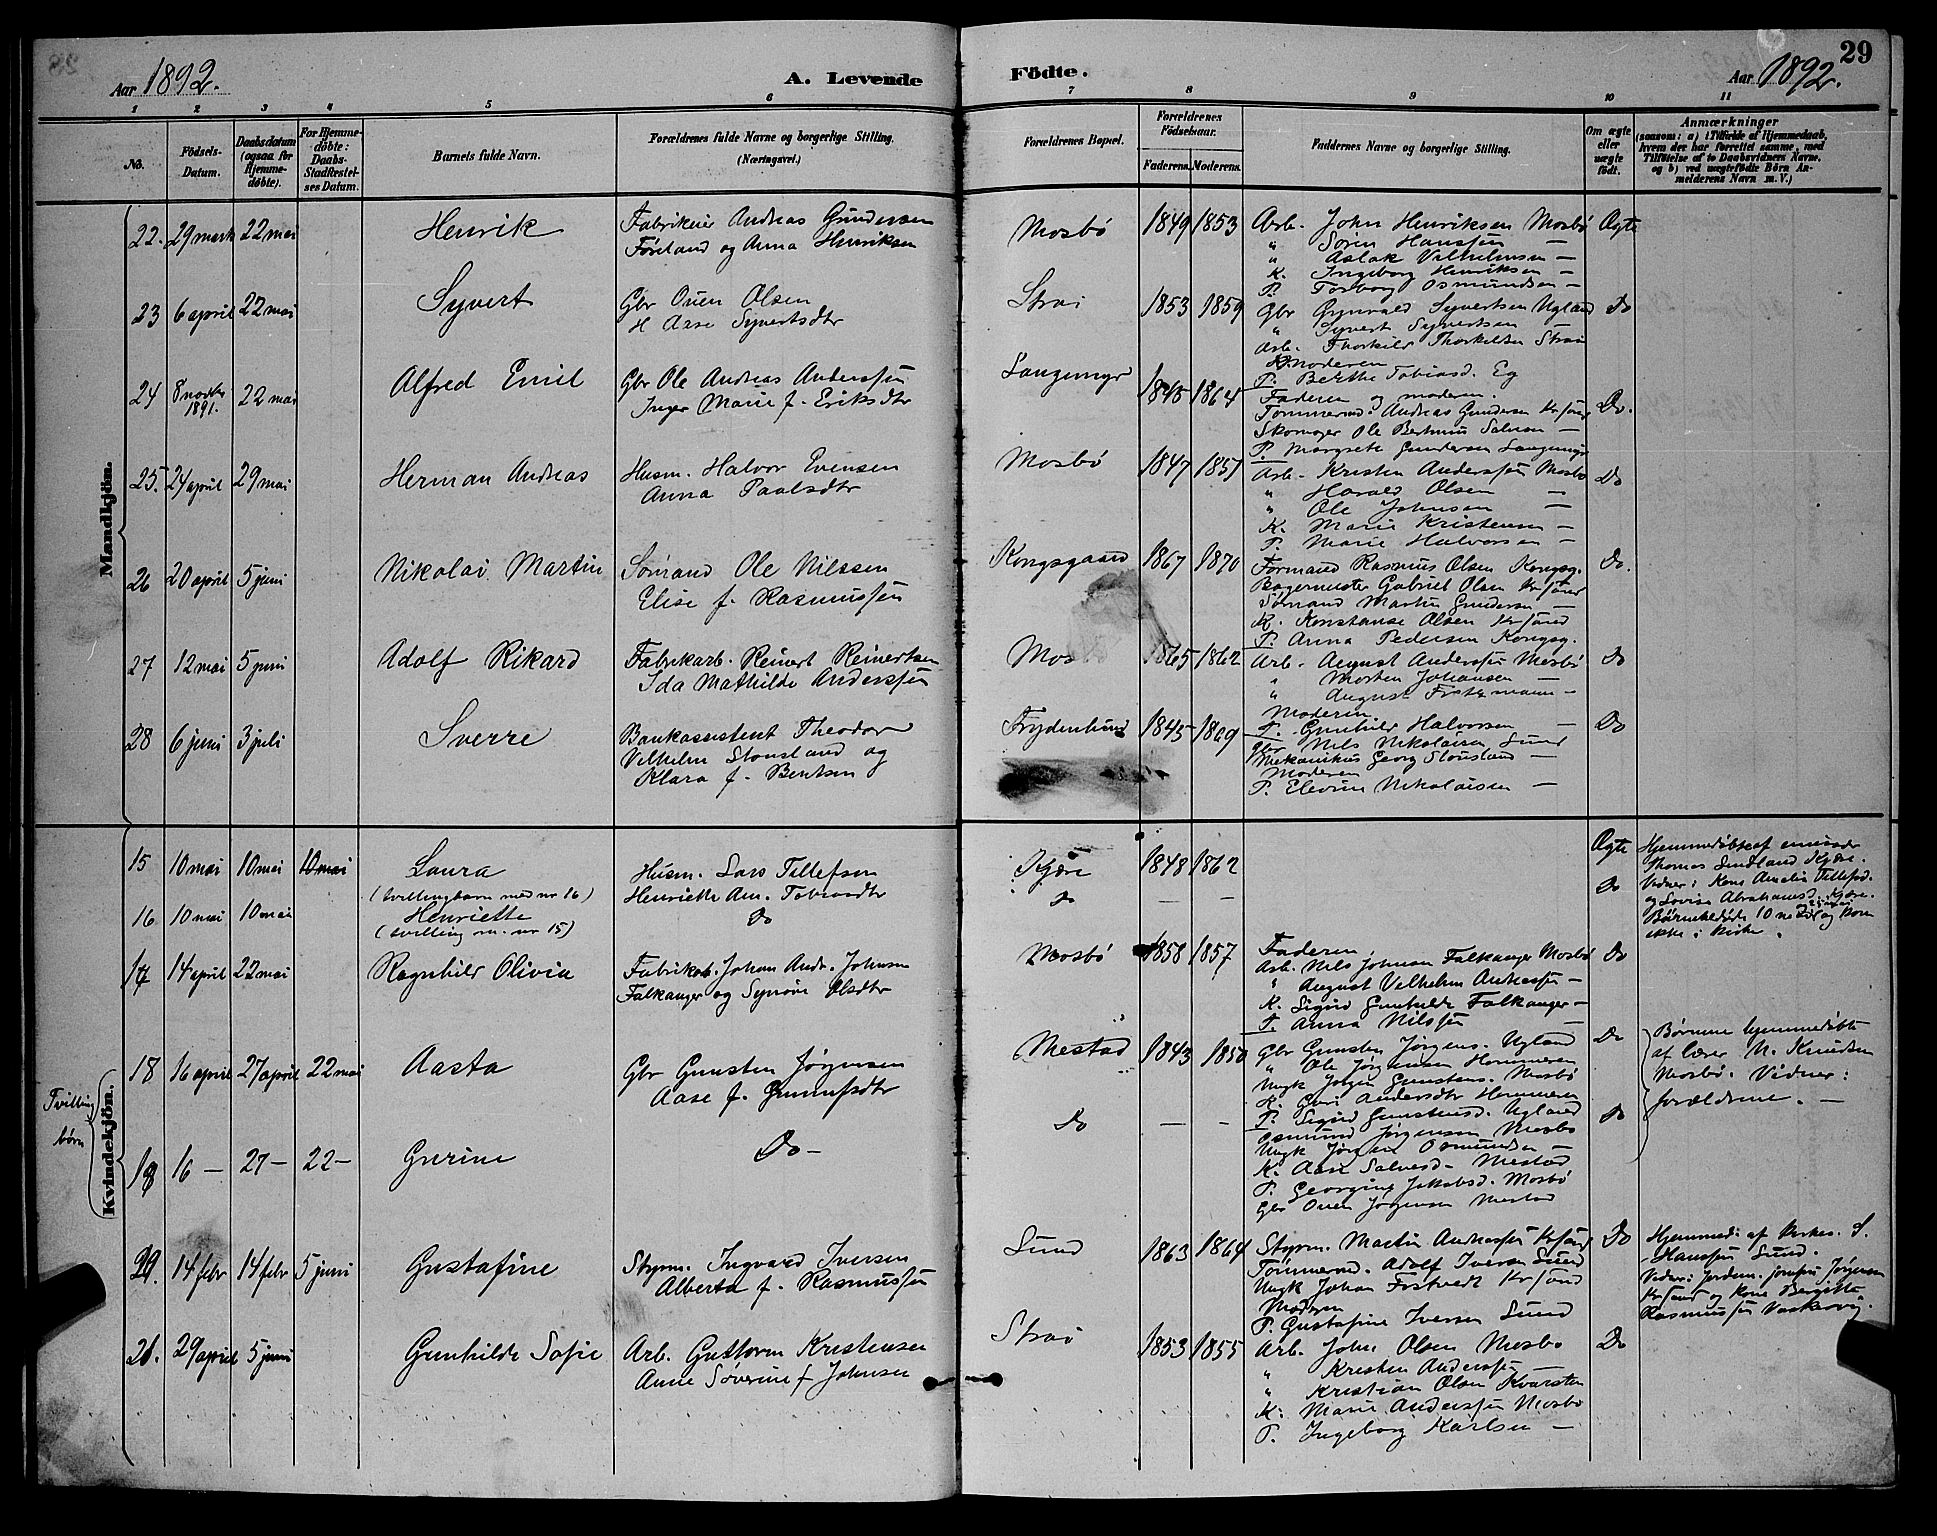 Aar 1892.
A. Levende
Födte.
29
Aar 1892.
1 2 3 4 5 6 7 8 9 10 11
No.
Födsels-Datum.
Daabsdatum (ogsaa for Hjemme-döbte).
For Hjemme-döbte: Daabs-Stadfæstel-ses Datum.
Barnets fulde Navn.
Forældrenes fulde Navne og borgerlige Stilling.
(Næringsvei.)
Forældrenes Bopæl.
Forældrenes Födselsaar.
Faderens. Moderens.
Faddernes Navne og borgerlige Stilling.
Om ægte eller uægte födt.
Anmærkninger
(saasom: a) i Tilfælde af Hjemmedaab, hvem der har forrettet samme, med Tilföielse af to Daabsvidners Navne, og b) ved uægtefödte Börn Anmelderens Navn m. V.)
Mandkjön.
22. 29 marts 22 mai Henrik
Fabrikeier Andreas Gundersen
Føreland og Anna Henriksen
Mosbö 1849 1853
Arb. John Henriksen Mosbö
" Sören Hanssen —
" Aslak Vilhelmsen —
K. Ingeborg Henriksen —
P. Torborg Osmundsen —
Ægte
23 6 april 22 mai Syvert
Gbr Ouen Olsen
H Aase Syvertsdtr
Strai 1853 1859
Gbr Grunvald Syvertsen Ugland
" Syvert Syvertsen
Arb. Thorkild Thorkildsen Strai
Moderen
P. Berthe Tobiasd. Eg
Do
24 8 novbr 1891. 22 mai Alfred Emil
Gbr Ole Andreas Anderssen
Inger Marie f. Eriksdtr
Langemyr 1845 1864
Faderen og moderen.
Tømmermd. Andreas Gundersen Krsand
Skomager Ole Bertinius Salvesen —
P. Margrete Gundersen Langemyr
Do.
25. 24 april 29 mai Herman Andreas
Husm. Halvor Evensen
Anna Paalsdtr
Mosbö 1847 1851
Arb. Kristen Anderssen Mosbö
" Harald Olsen —
" Ole Johnsen —
K. Marie Kristensen —
P. Marie Halvorsen —
Do
26 20 april 5 juni Nikolai Martin
Sömand Ole Nilssen
Elise f. Rasmussen
Kongsgaard 1867 1870
Formand Rasmus Olsen Kongsg.
Bagermester Gabriel Olsen Krsand
Sømand Martin Gundersen —
K. Konstanse Olsen Krsand
P. Anna Pedersen Kongsg.
Do.
27 12 mai 5 juni Adolf Rikard
Fabrikarb. Reinert Reinertsen
Ida Mathilde Anderssen
Mosbö 1865 1862
Arb. August Anderssen Mosbö
" Morten Johansen —
" August Fratzmann —
Moderen
P. Gunhild Halvorsen —
Do
28 6 juni 3 juli Sverre
Bankassistent Theodor
Vilhelm Stousland og
Klara f. Bentsen
Frydenlund 1845 1869
Gbr Nils Nikolaisen Sund
Mekanikus Georg Stousland —
Moderen
P. Elevine Nikolaisen —
Do
Kvindekjön.
15 10 mai 10 mai 10 mai Laura
(tvillingbarn med nr 16)
Husm. Lars Tellefsen
Henriette Am. Tobiasdtr
Kjære 1848 1862
Ægte
Hjemmedöbt af emissær
Thomas Sundland Kjære.
Vidner: Kone Amalia Tellefsd.
og Lovise Abrahamsd. Kjære.
16 10 mai 10 mai Henriette
(tvilling m. nr 15)
Do
Do — —
Do
ikke i kirke.
17 14 april 22 mai Ragnhild Olivia
Fabrikab. Johan Andr. Johnsen
Falkanger og Synöve Olsdtr
Mosbö 1858 1857
Faderen
Arb. Nils Johnsen Falkanger Mosbö
" August Vilhelm Andreassen —
K. Sigrid Gunhilde Falkanger —
P. Anna Nilssen —
Do
Tvilling
börn
18 16 april 27 april 22 mai Aasta
Gbr Gunsten Jørgensen
Aase f. Gunnufsdtr
Mestad 1843 1850
Gbr Gunsten Jørgens. Ugland
" Ole Jørgensen Hommeren
Ungk Jörgen Gunstens. Mosbö
K. Guri Andersdtr Hommeren
P. Sigrid Gunstensd. Ugland
Do
Børnene hjemmedöbte
af lærer N. Knudsen
Mosbö. Vidner:
forældrene. —
19 16 — 27 — 22 — Gurine
Do —
Do — —
Osmund Jørgensen Mosbö
Ungk Jørgen Osmundsen —
K. Aase Salvesd. Mestad
P. Georgine Jakobsd. Mosbö
Gbr Ouen Jørgensen Mestad
Do
20 14 febr 14 febr 5 juni Gustafine
Styrm. Ingvard Iversen
Alberta f. Rasmussen
Sund 1863 1864
Styrm. Martin Andreassen Krsand
Tømmermd. Adolf Iversen Sund
Ungk Johan Fostvedt Krsand
Moderen
P. Gustafine Iversen Sund
Do
Hjemmed. af kirkes. S.
Hanssen Sund.
Vidner: Jordem. Josefine Jörgensen
Krsand og Kone Bergitte
Rasmussen
21. 29 april 5 juni Gunhilde Sofie
Arb. Guttorm Kristensen
Anne Søverine f Johnsen
Strai 1853 1855
Arb. John Olsen Mosbö
" Kristen Anderssen —
" Kristian Olsen Kvarsten
K. Marie Anderssen Mosbö
P. Ingeborg Karlsen —
Do